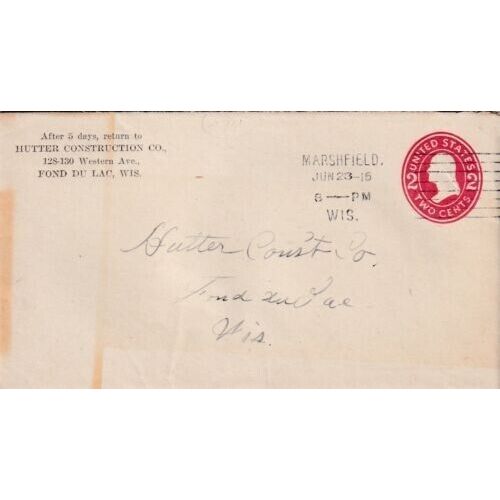 After 5 days, return to
HUTTER CONSTRUCTION CO.,
128-130 Western Ave.,
FOND DU LAC, WIS.
MARSHFIELD.
JUN 23-15
8 — PM
WIS.
UNITED STATES
2 2
TWO CENTS
Hutter Const Co.
Fond du Lac
Wis.